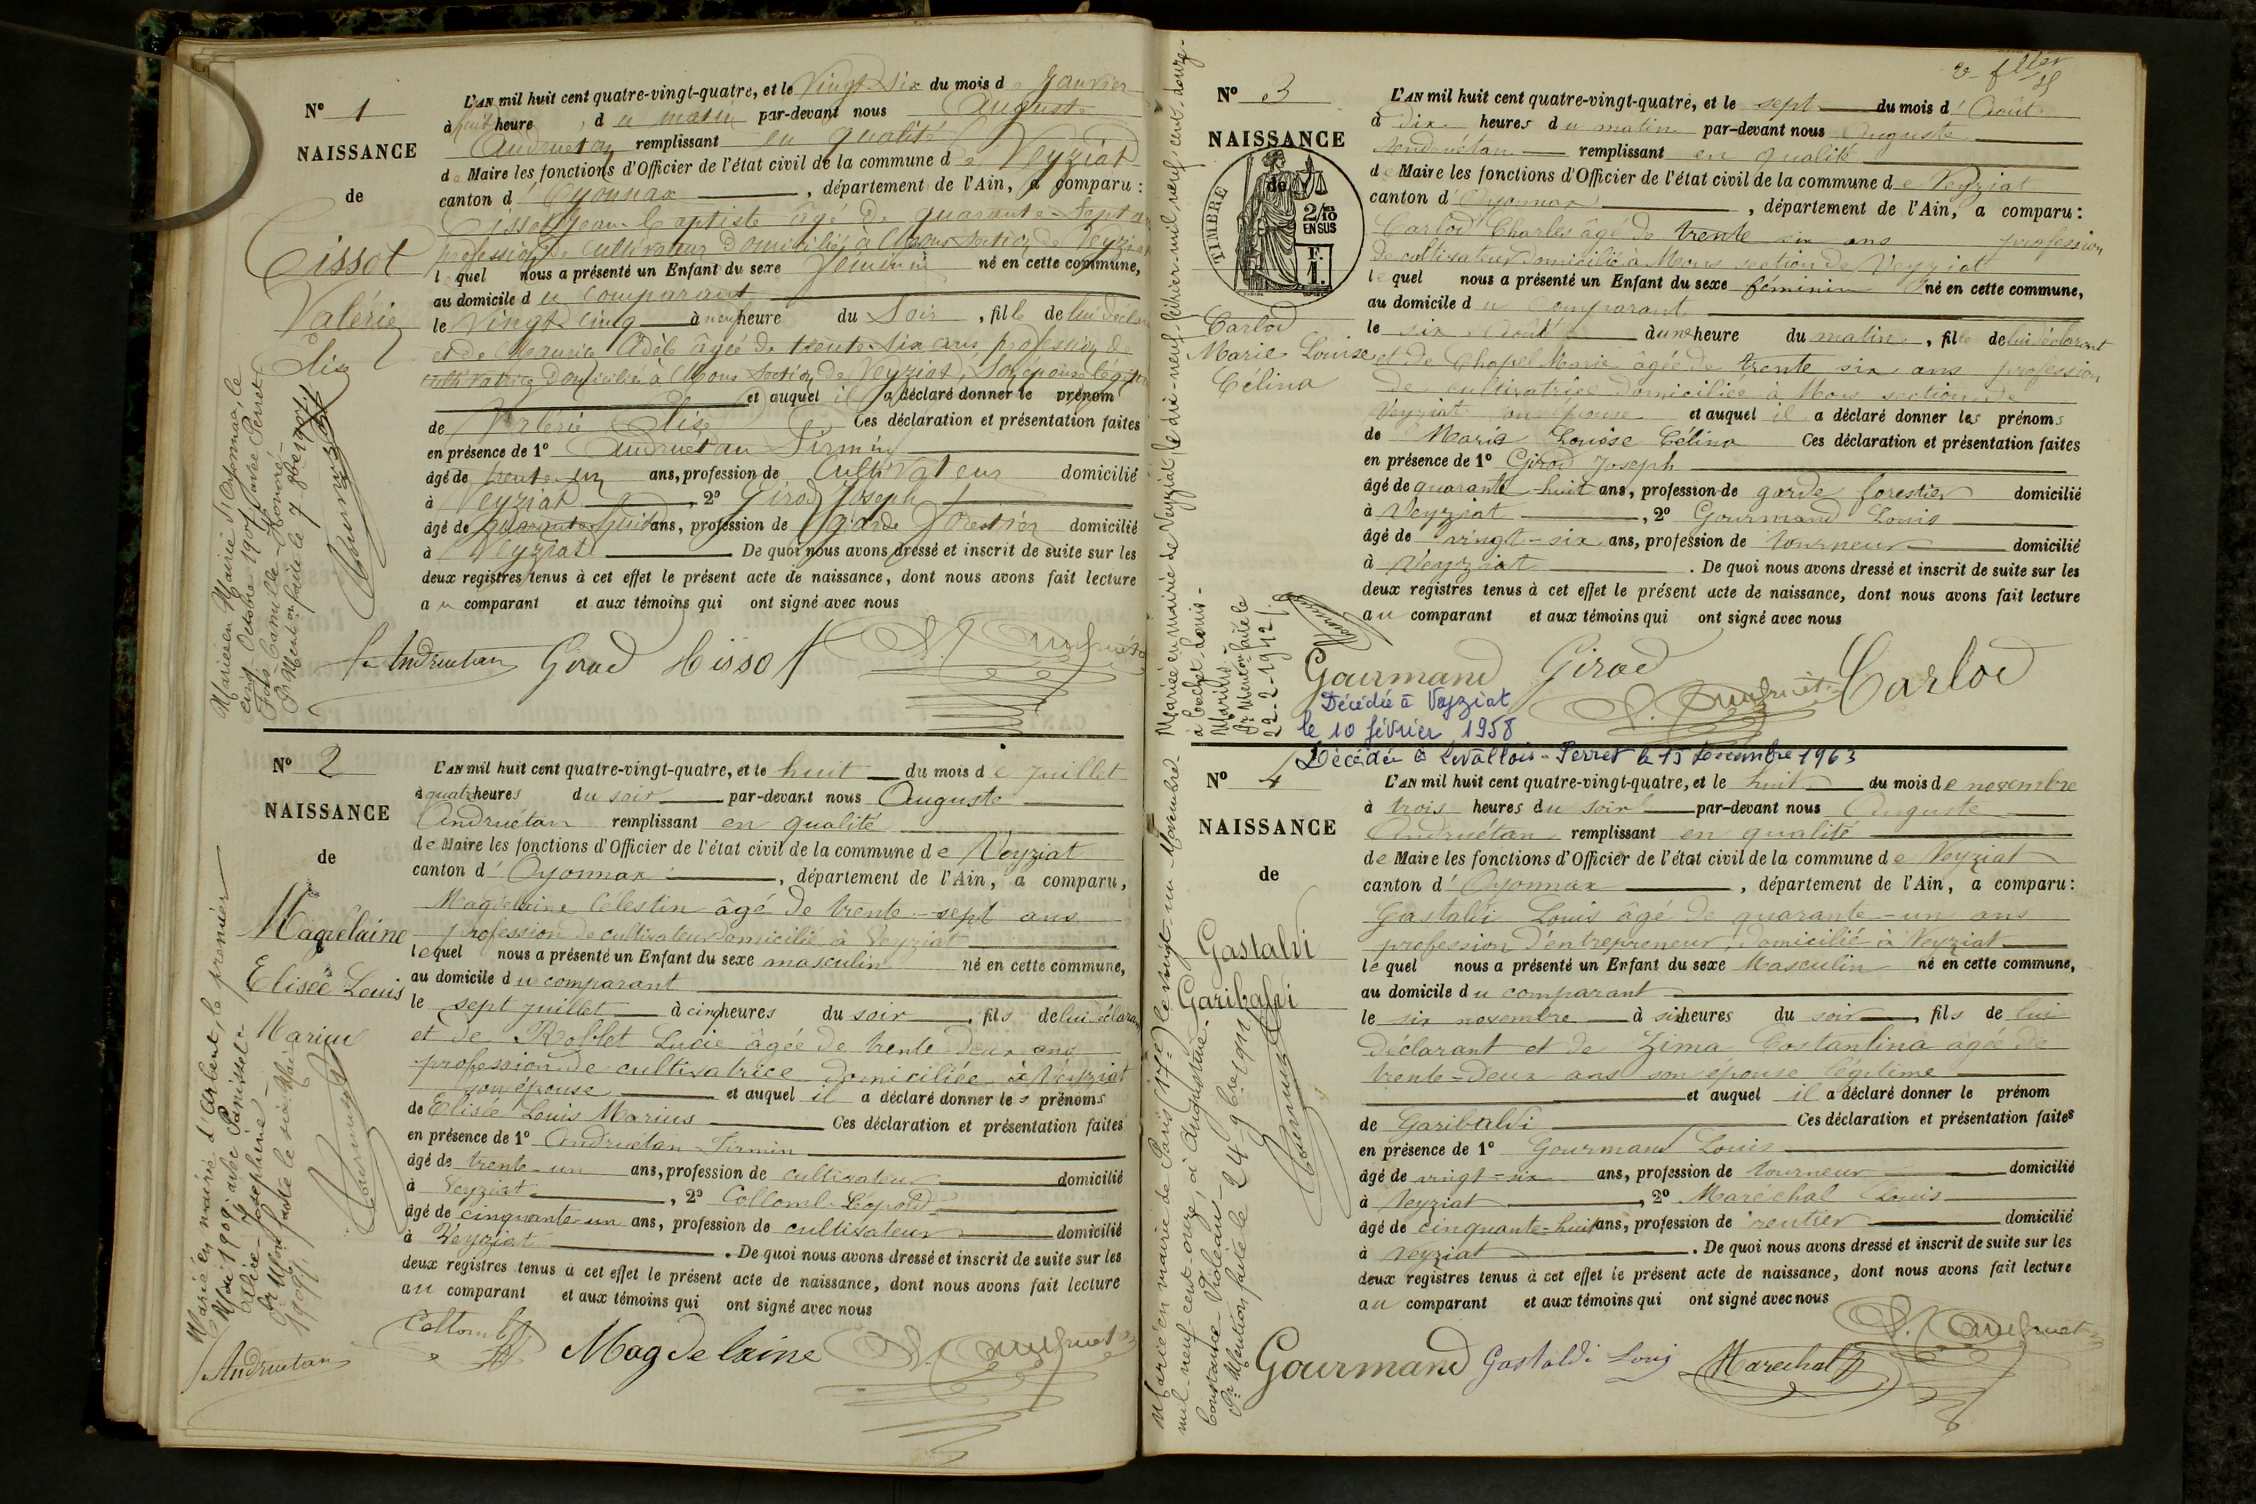 N° 1
NAISSANCE
de
Cissot
Valérie
Elise
L'AN mil huit cent quatre-vingt-quatre, et le Vingt-six du mois de Janvier
à huit heure, du matin par-devant nous Auguste
Andruétan remplissant en qualité
de Maire les fonctions d'Officier de l'état civil de la commune de Veyziat
canton d'Oyonnax, département de l'Ain, a comparu :
Cissot Jean Baptiste âgé de quarante-sept ans
profession de cultivateur domicilié à Mons section de Veyziat
lequel nous a présenté un Enfant du sexe féminin né en cette commune,
au domicile du comparant
le Vingt cinq à neuf heure du Soir, fille de lui déclarant
et de Maurice Adèle âgée de trente-six ans profession de
cultivatrice domiciliée à Mons section de Veyziat, son épouse légitime
et auquel il a déclaré donner le prénom
de Valérie Elise Ces déclaration et présentation faites
en présence de 1° Andruétan Firmin
âgé de trente un ans, profession de Cultivateur domicilié
à Veyziat, 2° Girod Joseph
âgé de quarante huit ans, profession de Garde forestier domicilié
à Veyziat De quoi nous avons dressé et inscrit de suite sur les
deux registres tenus à cet effet le présent acte de naissance, dont nous avons fait lecture
au comparant et aux témoins qui ont signé avec nous
f. Andruetan Girod Cissot A. Andruétan
Mariée en Mairie d'Oyonnax, le
cinq Octobre 1907 avec Perret
Camille-Honoré-
Pr Mention faite le 7 8bre 1907
N° 2
NAISSANCE
de
Magdelaine
Elisée Louis
Marius
L'AN mil huit cent quatre-vingt-quatre, et le huit du mois de juillet
à quatre heures du soir par-devant nous Auguste
Andruétan remplissant en qualité
de Maire les fonctions d'Officier de l'état civil de la commune de Veyziat
canton d'Oyonnax, département de l'Ain, a comparu,
Magdelaine Célestin âgé de trente-sept ans
profession de cultivateur domicilié à Veyziat
lequel nous a présenté un Enfant du sexe masculin né en cette commune,
au domicile du comparant
le sept juillet à cinq heures du soir, fils de lui déclarant
et de Roblet Lucie âgée de trente deux ans
profession de cultivatrice domiciliée à Veyziat
son épouse et auquel il a déclaré donner les prénoms
de Elisée Louis Marius Ces déclaration et présentation faites
en présence de 1° Andruétan Firmin
âgé de trente-un ans, profession de cultivateur domicilié
à Veyziat, 2° Collomb Léopold
âgé de cinquante-un ans, profession de cultivateur domicilié
à Veyziat. De quoi nous avons dressé et inscrit de suite sur les
deux registres tenus à cet effet le présent acte de naissance, dont nous avons fait lecture
au comparant et aux témoins qui ont signé avec nous
f. Andruetan Collomb Magdelaine A. Andruétan
Marié en mairie d'Arbent, le premier
Mai 1909, avec Panisset
Alice-Joséphine-
Pr Mention faite le six Mai
1909
N° 3
NAISSANCE
de
TIMBRE
2/10
EN SUS
F.
1.
Carlod
Marie Louise
Célina
L'AN mil huit cent quatre-vingt-quatre, et le sept du mois d'Août
à dix heures du matin par-devant nous Auguste
Andruétan remplissant en qualité
de Maire les fonctions d'Officier de l'état civil de la commune de Veyziat
canton d'Oyonnax, département de l'Ain, a comparu :
Carlod Charles âgé de trente six ans profession
de cultivateur domicilié à Mons section de Veyziat
lequel nous a présenté un Enfant du sexe féminin né en cette commune,
au domicile du comparant
le six Août à une heure du matin, fille de lui déclarant
et de Chapel Marie âgée de trente six ans profession
de cultivatrice domiciliée à Mons section de
Veyziat son épouse et auquel il a déclaré donner les prénoms
de Marie Louise Célina Ces déclaration et présentation faites
en présence de 1° Girod Joseph
âgé de quarante-huit ans, profession de garde forestier domicilié
à Veyziat, 2° Gourmand Louis
âgé de vingt-six ans, profession de tourneur domicilié
à Veyziat. De quoi nous avons dressé et inscrit de suite sur les
deux registres tenus à cet effet le présent acte de naissance, dont nous avons fait lecture
au comparant et aux témoins qui ont signé avec nous
Gourmand Girod A. Andruétan Carlod
Décédée à Veyziat
le 10 février 1958
Mariée en mairie de Veyziat, le dix-neuf février mil neuf cent douze-
Pr Mention faite le
22-2-1912
Décédé à Levallois-Perret le 15 Décembre 1963
N° 4
NAISSANCE
de
Gastaldi
Garibaldi
L'AN mil huit cent quatre-vingt-quatre, et le huit du mois de novembre
à trois heures du soir par-devant nous Auguste
Andruétan remplissant en qualité
de Maire les fonctions d'Officier de l'état civil de la commune de Veyziat
canton d'Oyonnax, département de l'Ain, a comparu :
Gastaldi Louis âgé de quarante-un ans
profession d'entrepreneur, domicilié à Veyziat
lequel nous a présenté un Enfant du sexe Masculin né en cette commune,
au domicile du comparant
le six novembre à six heures du soir, fils de lui
déclarant et de Zima Costantina agée de
trente-deux ans son épouse légitime
et auquel il a déclaré donner le prénom
de Garibaldi Ces déclaration et présentation faites
en présence de 1° Gourmand Louis
âgé de vingt-six ans, profession de tourneur domicilié
à Veyziat, 2° Maréchal Louis
âgé de cinquante-huit ans, profession de rentier domicilié
à Veyziat. De quoi nous avons dressé et inscrit de suite sur les
deux registres tenus à cet effet le présent acte de naissance, dont nous avons fait lecture
au comparant et aux témoins qui ont signé avec nous
Gourmand Gastaldi Louis Marechal A. Andruétan
Marié en mairie de Paris (17e) le vingt-un Novembre
mil-neuf-cent-onze, à Augustine-
Constance
Pr Mention faite le 24-9bre 1911